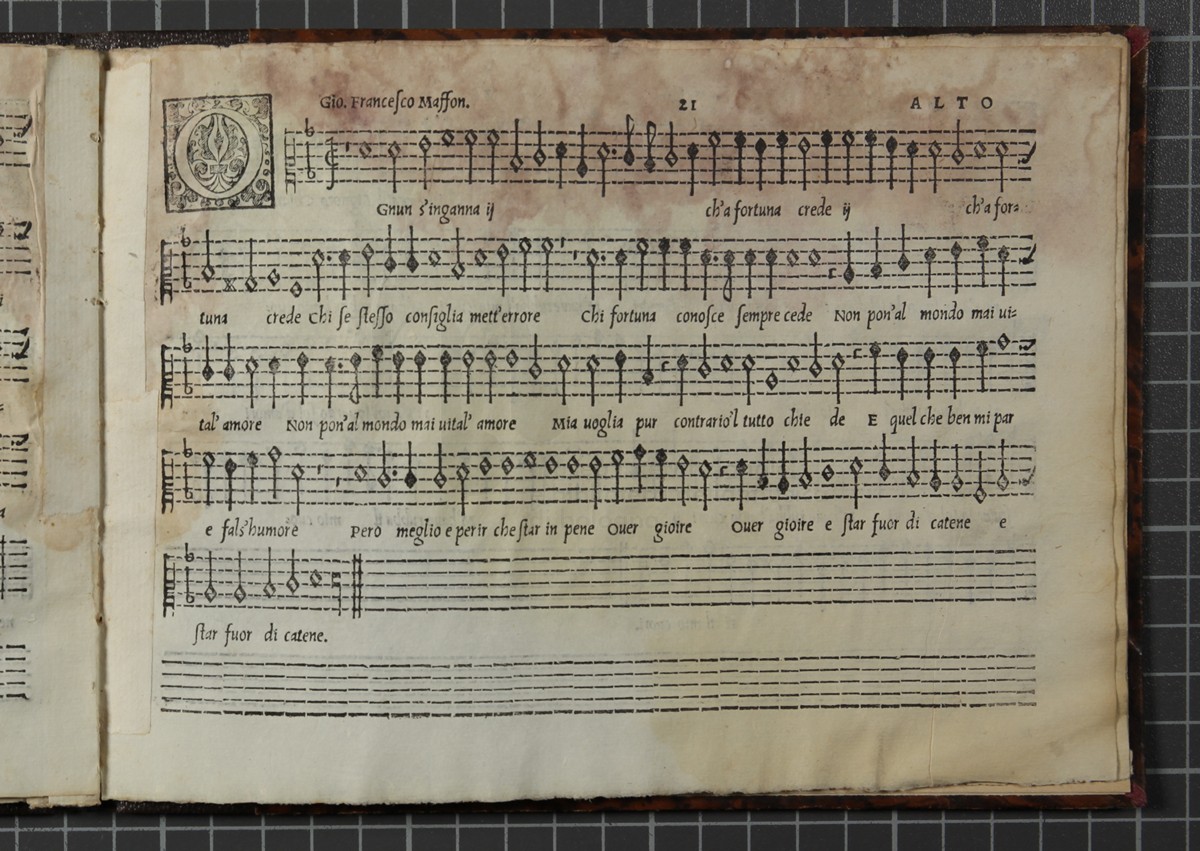 Gio. Franceſco Maſſon. 21 ALTO
O
Gnun s'inganna ij ch'a fortuna crede ij ch'a for=
tuna crede Chi ſe ſteſſo conſiglia mett'errore Chi fortuna conoſce ſempre cede Non pon'al mondo mai ui=
tal' amore Non pon'al mondo mai uital' amore Mia uoglia pur contrario'l tutto chie de E quel che ben mi par
e fals'humore Pero meglio e perir che ſtar in pene Ouer gioire Ouer gioire e ſtar fuor di catene e
ſtar fuor di catene.